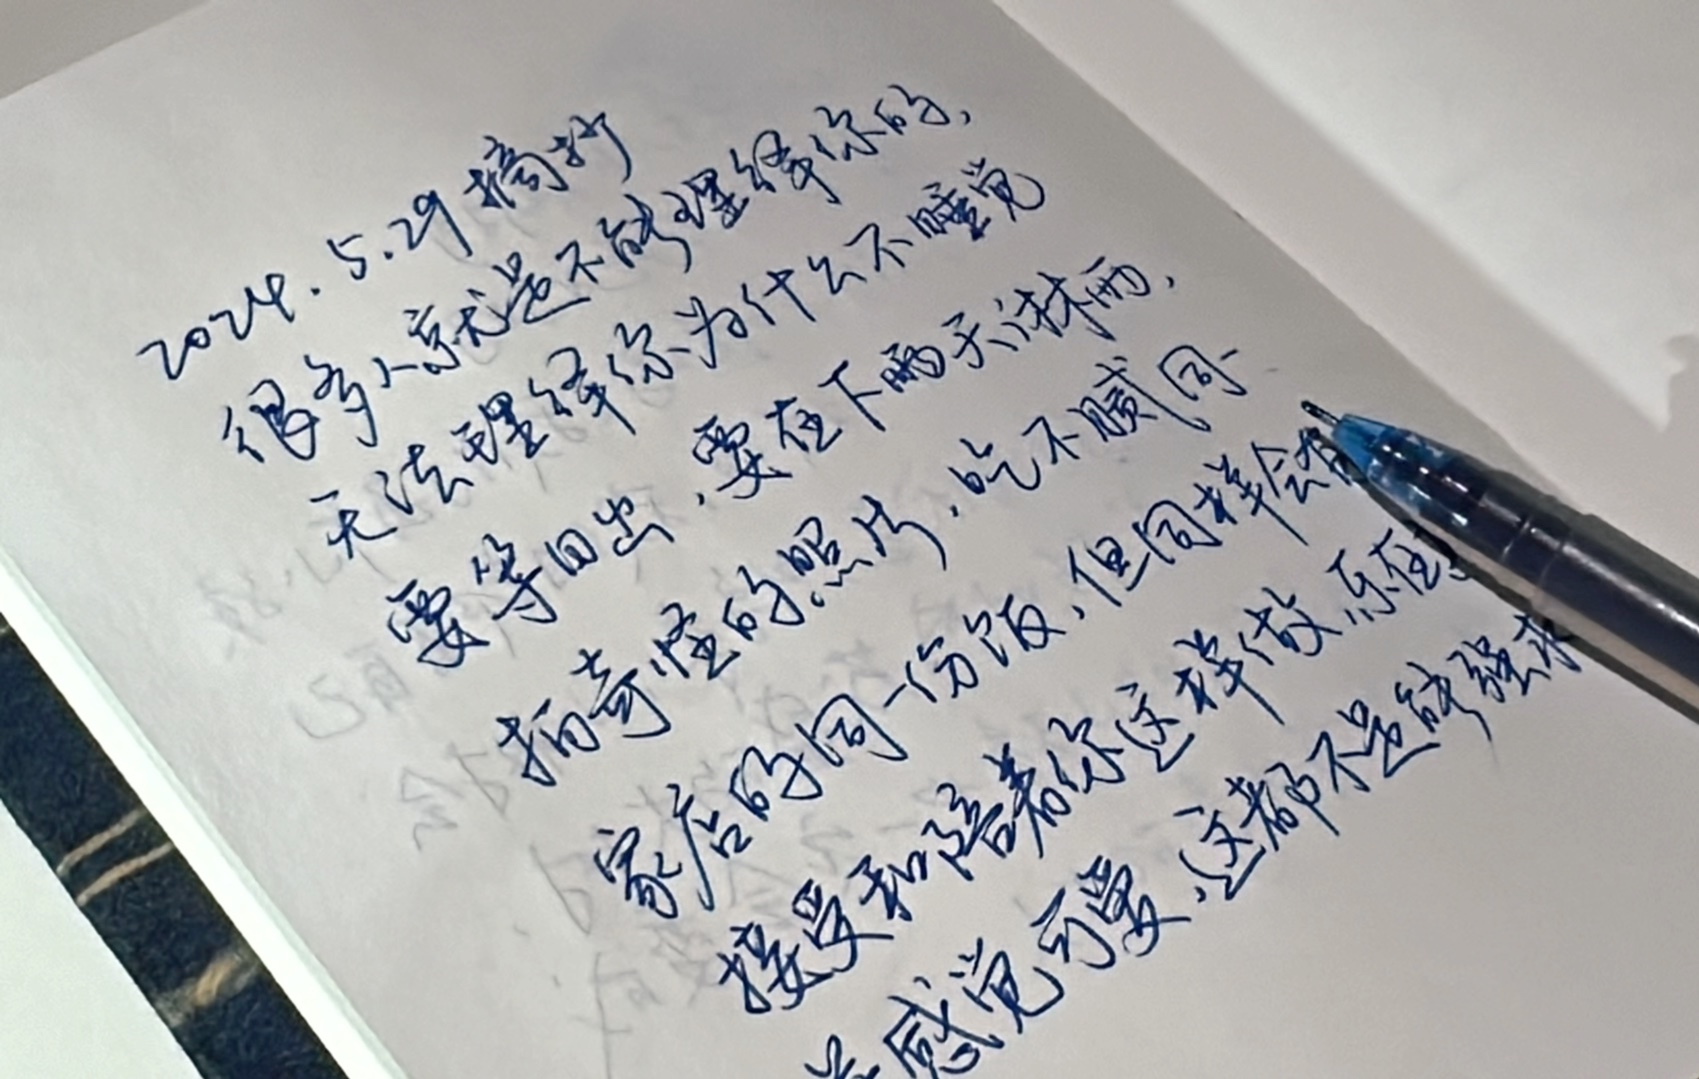 2024.5.29摘抄
很多人就是不能理解你的,
无法理解你为什么不睡觉
要等日出,要在下雨天淋雨,
拍奇怪的照片,吃不腻同一
家店的同一份饭,但同样会有
接受和陪着你这样做,乐在
感觉可爱,这都不是能够强求